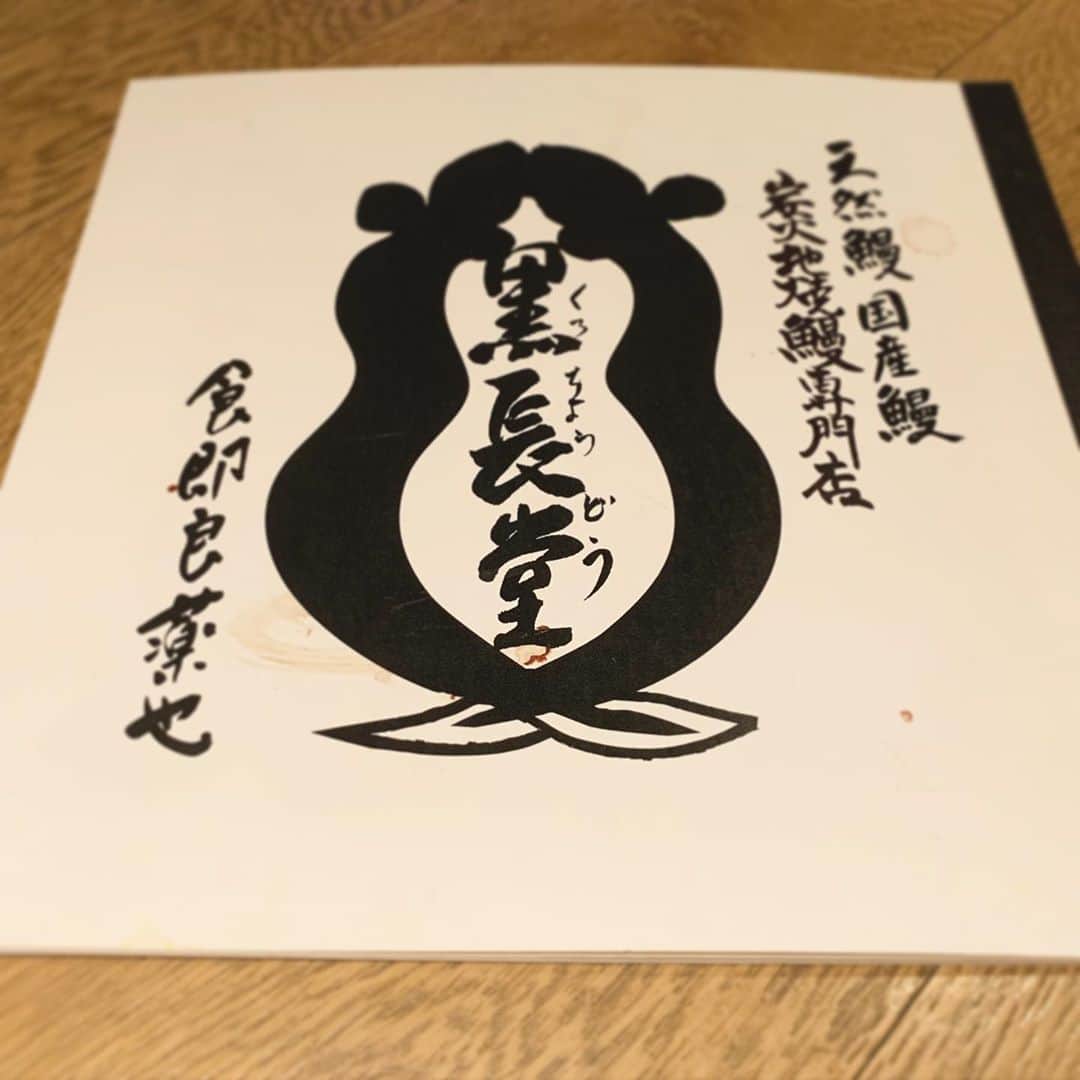 天然鰻国産鰻
炭火地焼鰻専門店
黒長堂
くろちょうどう
食即良薬也